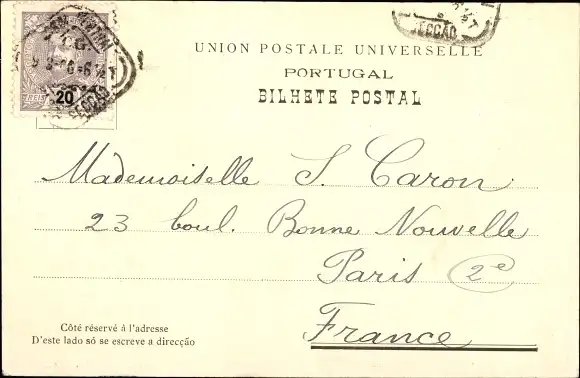 UNION POSTALE UNIVERSELLE
PORTUGAL
BILHETE POSTAL
REIS 20
SECÇÃO
SECÇÃO
Mademoiselle S. Caron
23 boul. Bonne Nouvelle
Paris 2e
France
Côté réservé à l'adresse
D'este lado só se escreve a direcção